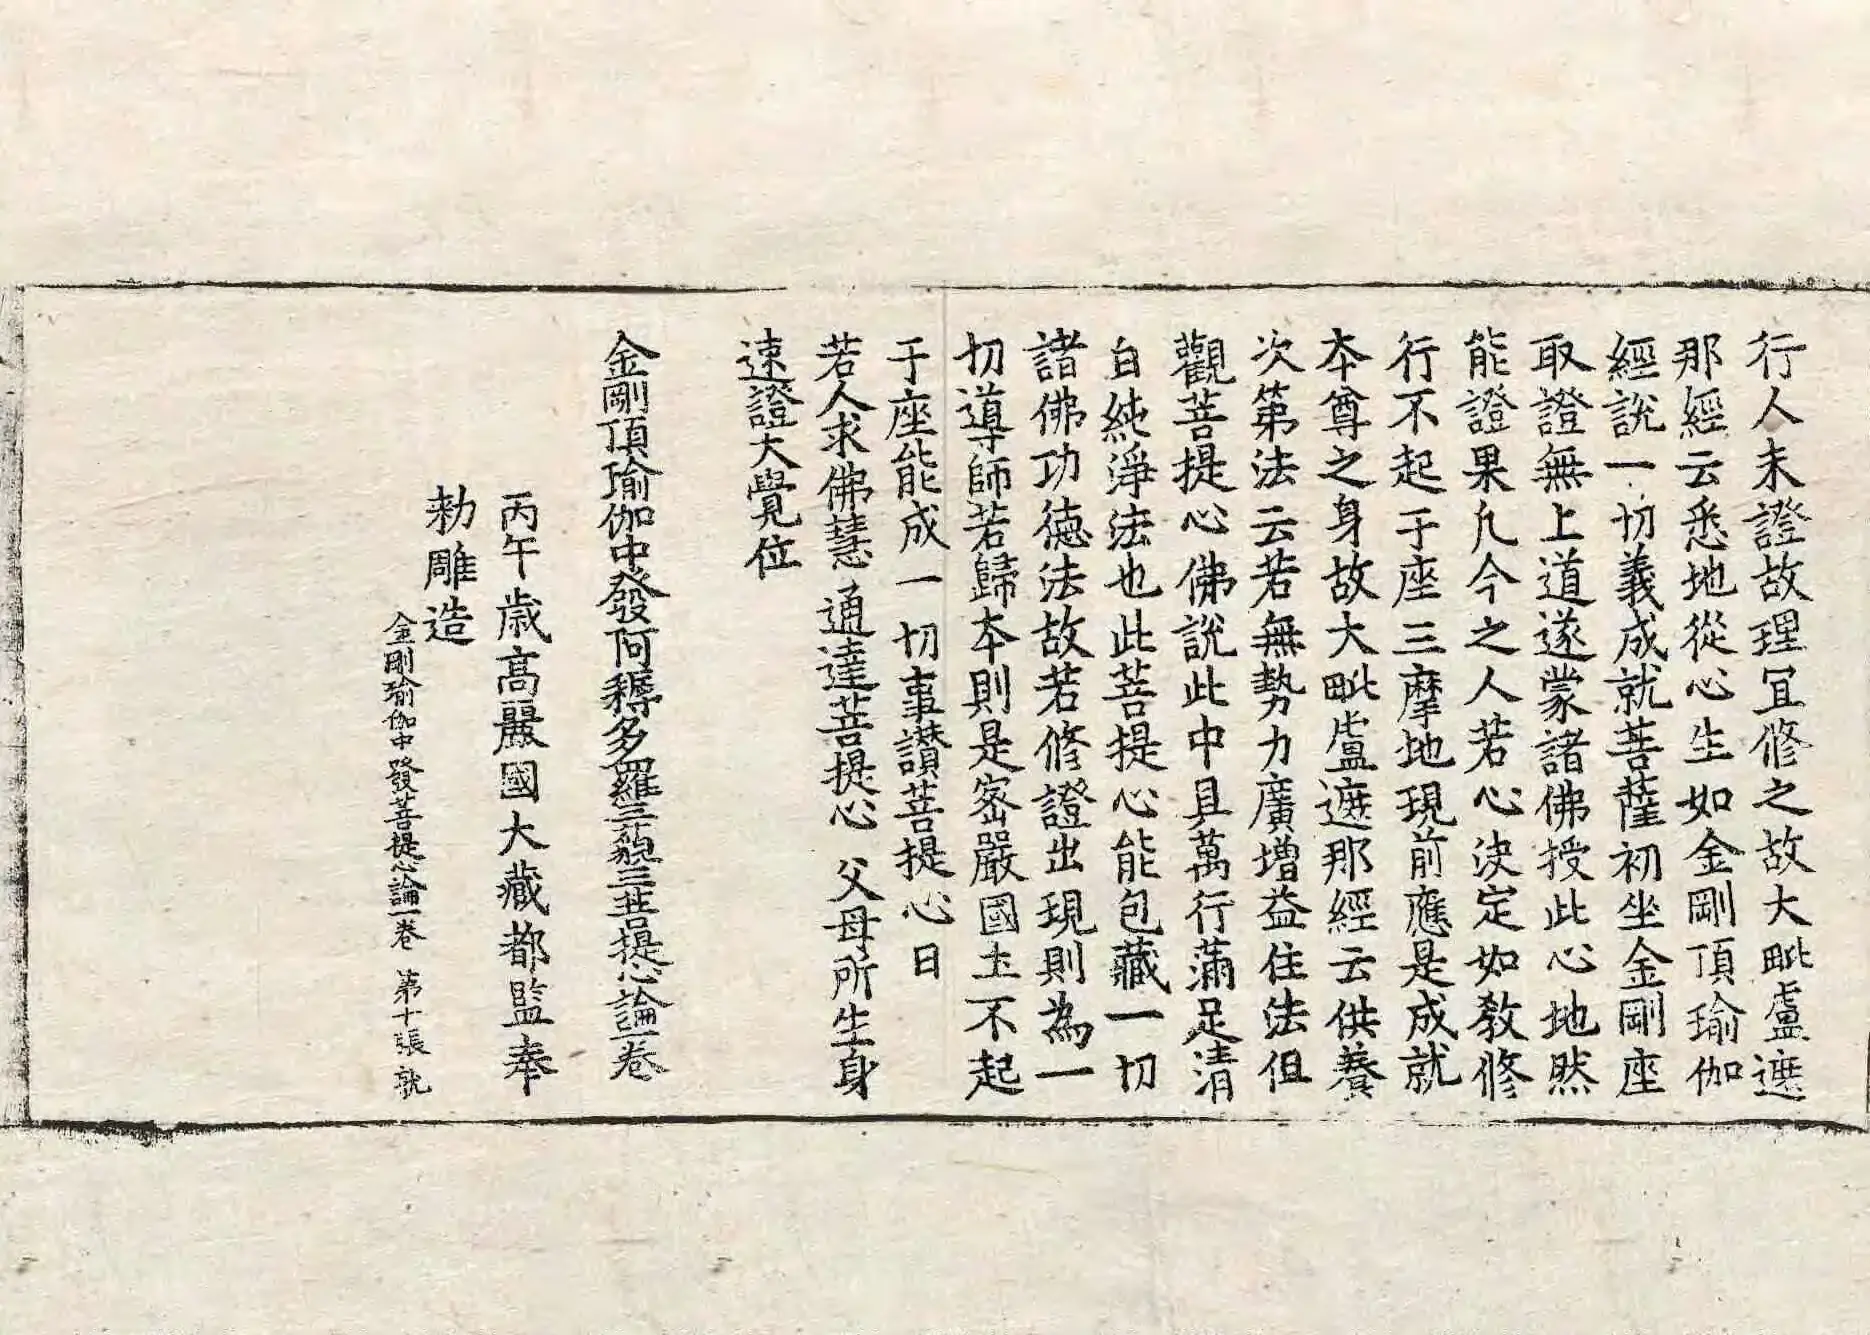 行人未證故理冝修之故大毗盧遮
那經云悉地從心生如金剛頂瑜伽
經說一切義成就菩薩初坐金剛座
取證無上道遂蒙諸佛授此心地然
能證果凡今之人若心决定如教修
行不起于座三摩地現前應是成就
本尊之身故大毗盧遮那經云供養
次第法云若無勢力廣增益住法但
觀菩提心佛說此中具萬行滿足清
白純淨法也此菩提心能包藏一切
諸佛功德法故若修證出現則為一
切導師若歸本則是密嚴國土不起
于座能成一切事讃菩提心曰
若人求佛慧 通達菩提心 父母所生身
速證大覺位
金剛頂瑜伽中發阿耨多羅三藐三菩提心論一卷
丙午歲高麗國大藏都監奉
勑雕造
金剛瑜伽中發菩提心論一卷 第十張 㲋